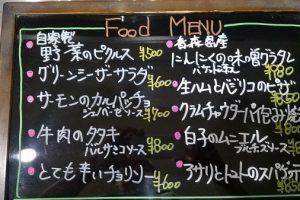 Food MENU
自家製
野菜のピクルス ¥500
グリーンシーザーサラダ ¥600
サーモンのカルパッチョ
ジェノベーゼソース ¥900
牛肉のタタキ
バルサミコソース ¥800
とても辛いチョリソー ¥600
青森県産
にんにくの
バゲット添え ¥680
生ハムとバジリコのピザ
クラムチャウダーパイ包み焼
白子のムニエル
ソース ¥880
アサリとトマトのスパゲティ